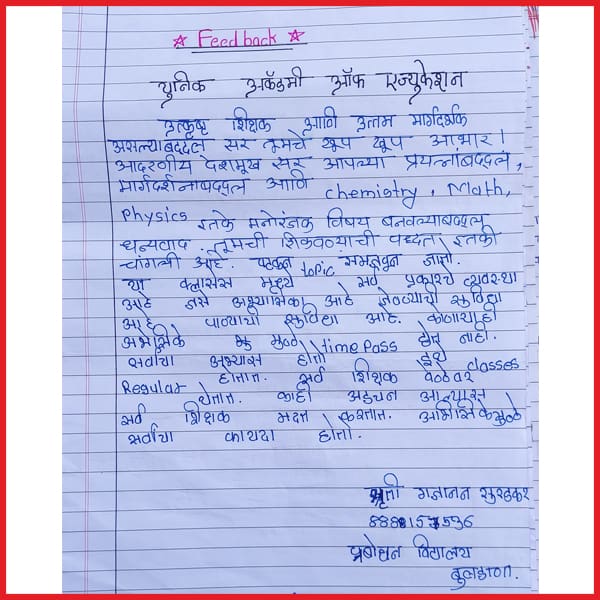 ☆ Feedback ☆
युनिक अकॅडमी ऑफ एज्युकेशन
उत्कृष्ट शिक्षक आणि उत्तम मार्गदर्शक
असल्याबद्दल सर तुमचे खूप खूप आभार!
आदरणीय देशमुख सर आपल्या प्रयत्नांबद्दल,
मार्गदर्शनाबद्दल आणि chemistry, Math,
Physics इतके मनोरंजक विषय बनवल्याबद्दल
धन्यवाद. तुमची शिकवण्याची पध्दत इतकी
चांगली आहे. पटकन topic समजून जातो.
या क्लासेस मध्ये सर्व प्रकारचे व्यवस्था
आहे जसे अभ्यासिका आहे जेवण्याची सुविधा
आहे पाण्याची सुविधा आहे. कोणाचाही
अभासिके मुळे timepass होत नाही.
सर्वांचा अभ्यास होतो इथे classes
Regular होतात. सर्व शिक्षक वेळेवर
येतात. काही अडचण आल्यास
सर्व शिक्षक मदत करतात. अभासिकेमुळे
सर्वांचा फायदा होतो.
गजानन सुरडकर
प्रबोधन विद्यालय
बुलडाणा.